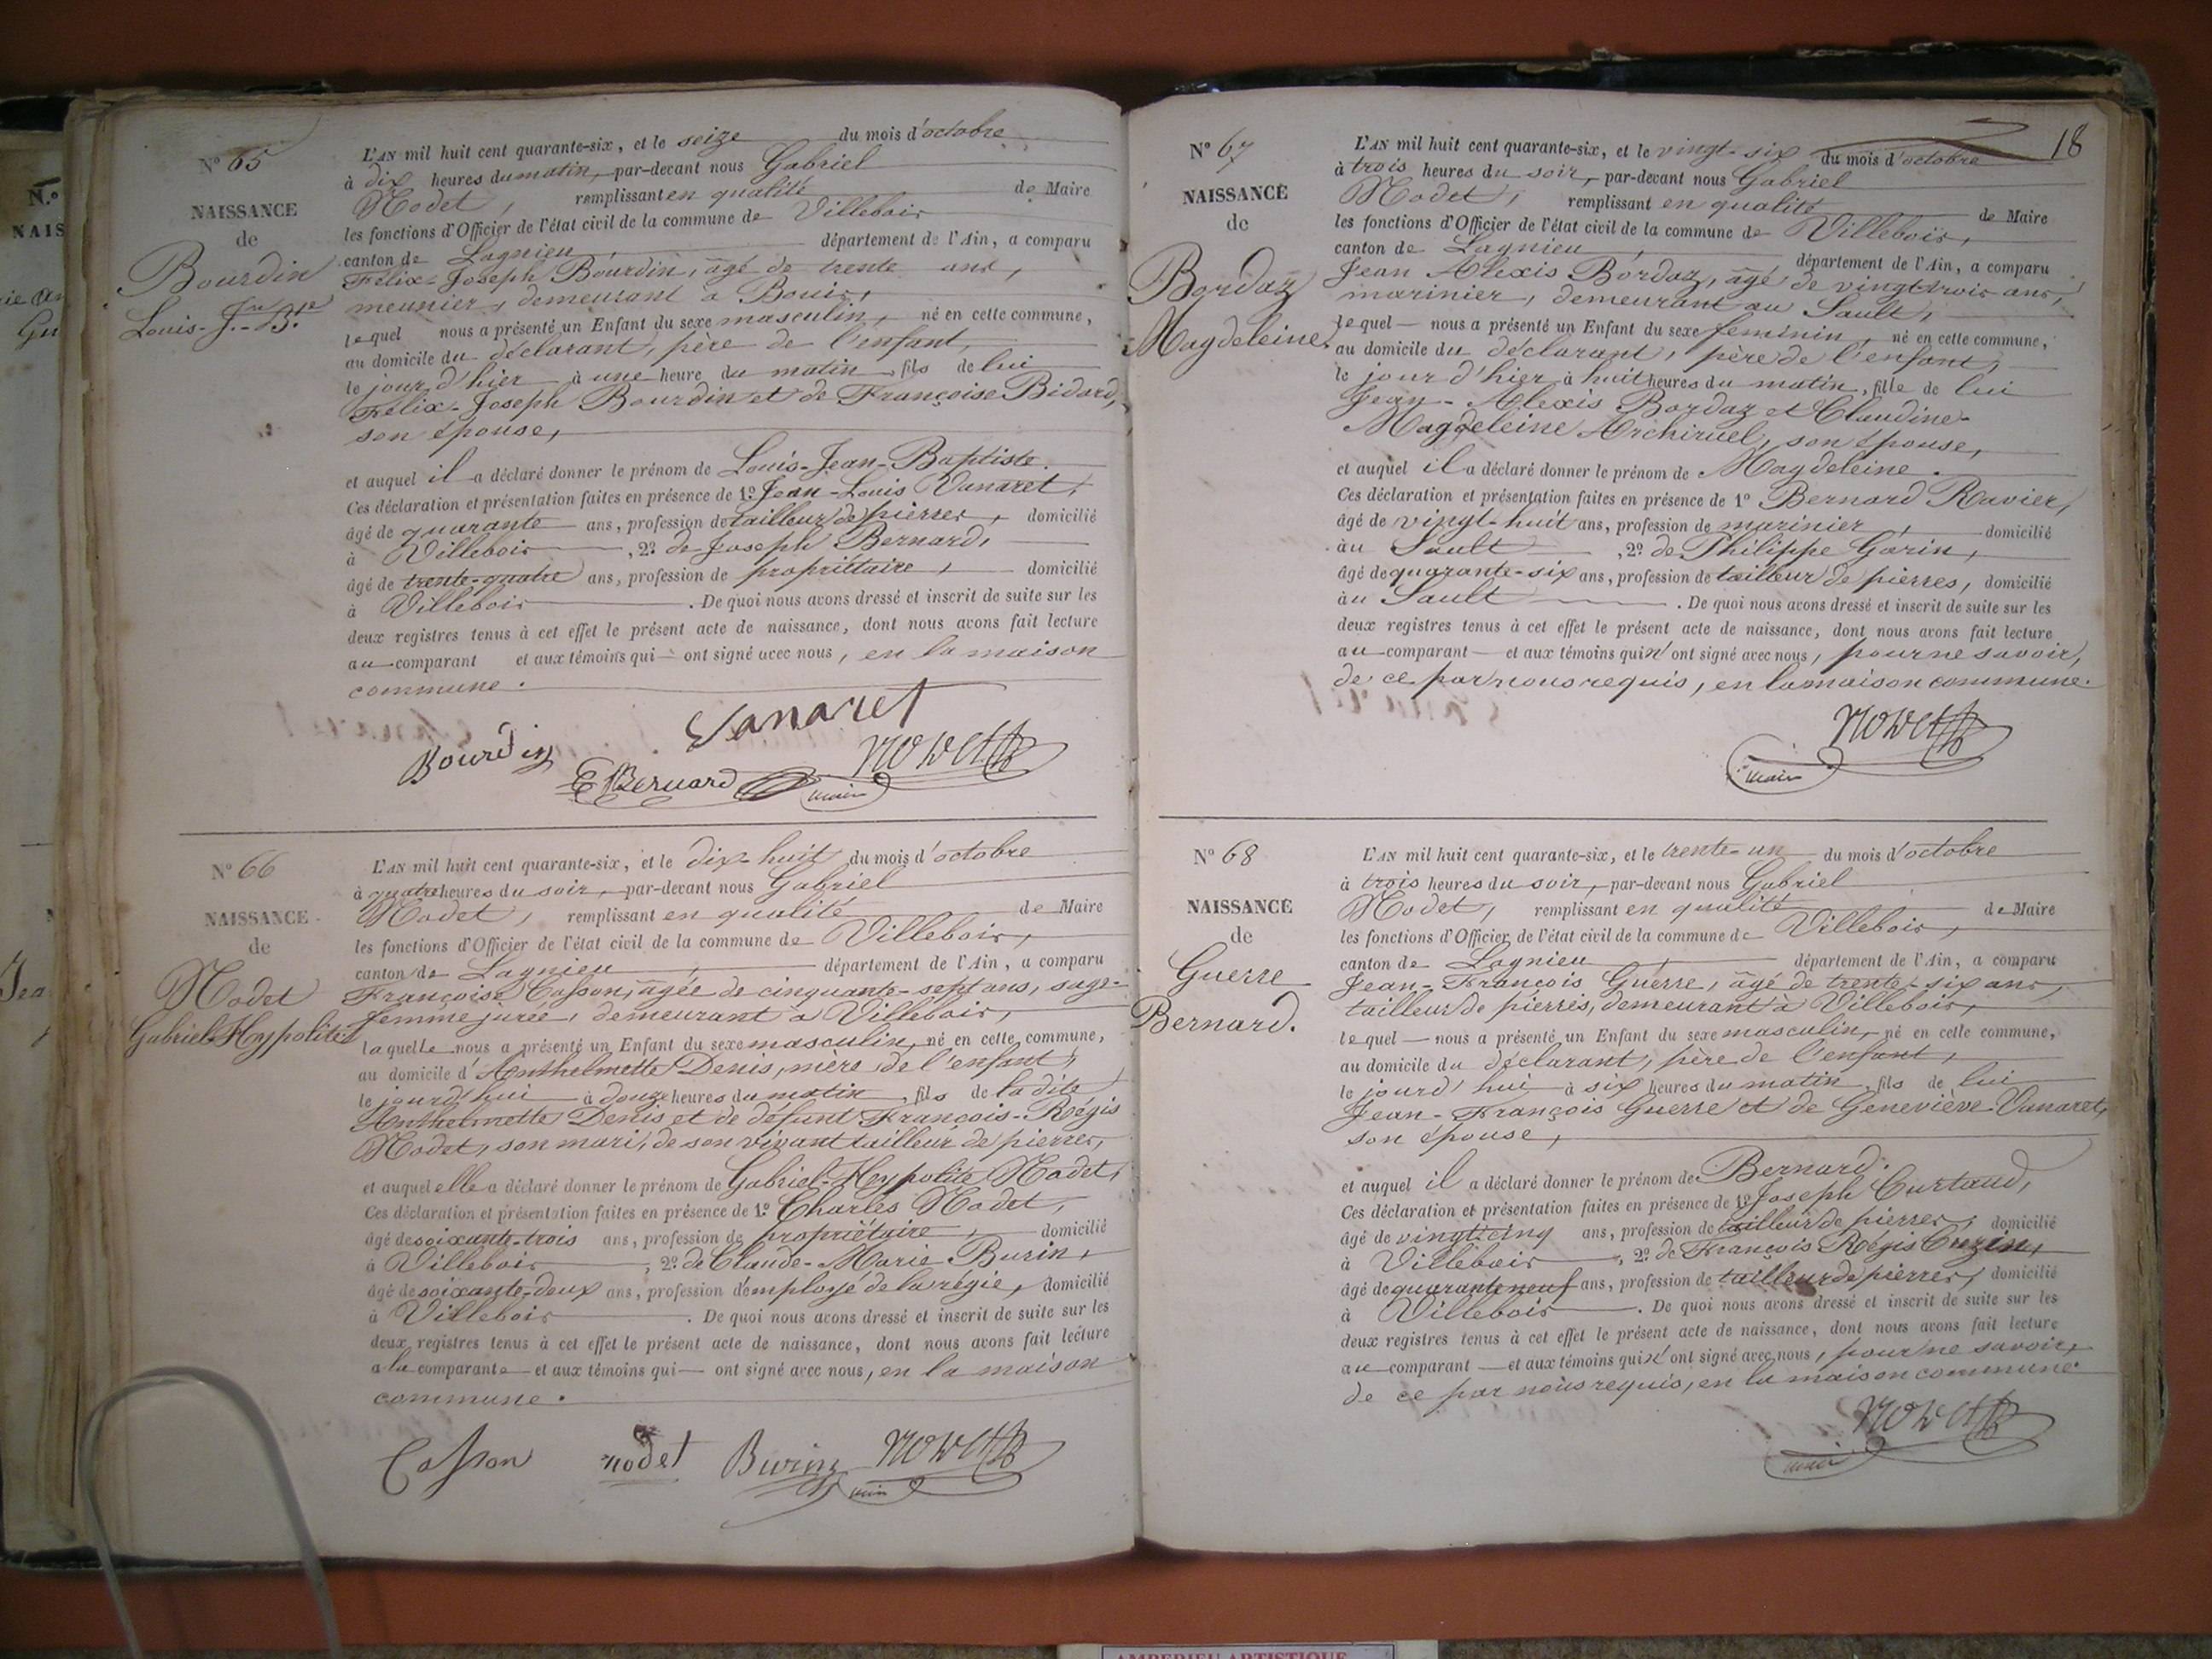 N° 65
NAISSANCE
de
Bourdin
Louis-Jn-Bte
L'AN mil huit cent quarante-six, et le seize du mois d'octobre
à dix heures du matin, par-devant nous Gabriel
Nodet, remplissant en qualité de Maire
les fonctions d'Officier de l'état civil de la commune de Villebois
canton de Lagnieu, département de l'Ain, a comparu
Félix-Joseph Bourdin, âgé de trente ans,
meunier, demeurant à Bouis,
lequel nous a présenté un Enfant du sexe masculin, né en cette commune,
au domicile du déclarant, père de l'enfant,
le jour d'hier à une heure du matin, fils de lui
Félix-Joseph Bourdin et de Françoise Bidard,
son épouse,
et auquel il a déclaré donner le prénom de Louis-Jean-Baptiste.
Ces déclaration et présentation faites en présence de 1° Jean-Louis Vanaret,
âgé de quarante ans, profession de tailleur de pierres, domicilié
à Villebois, 2° de Joseph Bernard,
âgé de trente-quatre ans, profession de propriétaire, domicilié
à Villebois. De quoi nous avons dressé et inscrit de suite sur les
deux registres tenus à cet effet le présent acte de naissance, dont nous avons fait lecture
au comparant et aux témoins qui ont signé avec nous, en la maison
commune.
Vanaret
Bourdin
Bernard
Nodet
maire
N° 66
NAISSANCE
de
Nodet
Gabriel-Hypolite
L'AN mil huit cent quarante-six, et le dix-huit du mois d'octobre
à quatre heures du soir, par-devant nous Gabriel
Nodet, remplissant en qualité de Maire
les fonctions d'Officier de l'état civil de la commune de Villebois,
canton de Lagnieu, département de l'Ain, a comparu
Françoise Casson, âgée de cinquante-sept ans, sage-
femme jurée, demeurant à Villebois,
laquelle nous a présenté un Enfant du sexe masculin, né en cette commune,
au domicile d'Anthelmette Denis, mère de l'enfant,
le jourd'hui à douze heures du matin, fils de la dite
Anthelmette Denis et de défunt François-Régis
Nodet, son mari, de son vivant tailleur de pierres,
et auquel elle a déclaré donner le prénom de Gabriel-Hypolite Nodet,
Ces déclaration et présentation faites en présence de 1° Charles Nodet,
âgé de soixante-trois ans, profession de propriétaire, domicilié
à Villebois, 2° de Claude-Marie Burin,
âgé de soixante-deux ans, profession d'employé de la régie, domicilié
à Villebois. De quoi nous avons dressé et inscrit de suite sur les
deux registres tenus à cet effet le présent acte de naissance, dont nous avons fait lecture
à la comparante et aux témoins qui ont signé avec nous, en la maison
commune.
Casson nodet Burin Nodet
maire
18
N° 67
NAISSANCE
de
Bordaz
Magdeleine.
L'AN mil huit cent quarante-six, et le vingt-six du mois d'octobre
à trois heures du soir, par-devant nous Gabriel
Nodet, remplissant en qualité de Maire
les fonctions d'Officier de l'état civil de la commune de Villebois,
canton de Lagnieu, département de l'Ain, a comparu
Jean Alexis Bordaz, âgé de vingt-trois ans,
marinier, demeurant au Sault,
lequel nous a présenté un Enfant du sexe féminin, né en cette commune,
au domicile du déclarant, père de l'enfant,
le jour d'hier à huit heures du matin, fille de lui
Jean-Alexis Bordaz et Claudine-
Magdeleine Archiruel, son épouse,
et auquel il a déclaré donner le prénom de Magdeleine.
Ces déclaration et présentation faites en présence de 1° Bernard Ravier,
âgé de vingt-huit ans, profession de marinier, domicilié
au Sault, 2° de Philippe Garin,
âgé de quarante-six ans, profession de tailleur de pierres, domicilié
au Sault. De quoi nous avons dressé et inscrit de suite sur les
deux registres tenus à cet effet le présent acte de naissance, dont nous avons fait lecture
au comparant et aux témoins qui n'ont signé avec nous, pour ne savoir,
de ce par nous requis, en la maison commune.
Nodet
maire
N° 68
NAISSANCE
de
Guerre
Bernard.
L'AN mil huit cent quarante-six, et le trente-un du mois d'octobre
à trois heures du soir, par-devant nous Gabriel
Nodet, remplissant en qualité de Maire
les fonctions d'Officier de l'état civil de la commune de Villebois,
canton de Lagnieu, département de l'Ain, a comparu
Jean-François Guerre, âgé de trente-six ans,
tailleur de pierres, demeurant à Villebois,
lequel nous a présenté un Enfant du sexe masculin, né en cette commune,
au domicile du déclarant, père de l'enfant,
le jourd'hui à six heures du matin, fils de lui
Jean-François Guerre et de Geneviève Vanaret,
son épouse,
et auquel il a déclaré donner le prénom de Bernard.
Ces déclaration et présentation faites en présence de 1° Joseph Curtaud,
âgé de vingt-cinq ans, profession de tailleur de pierres, domicilié
à Villebois, 2° de François Régis Cuzin,
âgé de quarante neuf ans, profession de tailleur de pierres, domicilié
à Villebois. De quoi nous avons dressé et inscrit de suite sur les
deux registres tenus à cet effet le présent acte de naissance, dont nous avons fait lecture
au comparant et aux témoins qui n'ont signé avec nous, pour ne savoir,
de ce par nous requis, en la maison commune.
Nodet
maire